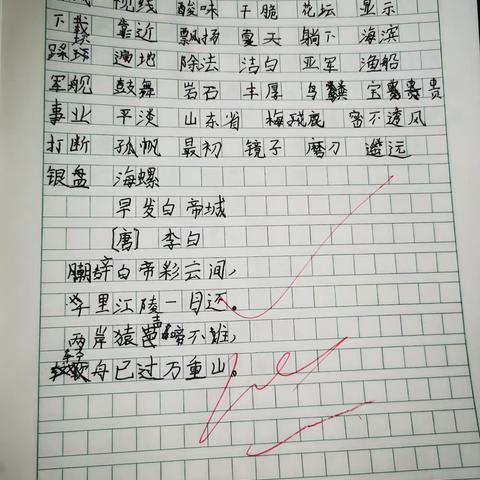 视线 酸味 干脆 花坛 显示
下载 靠近 飘扬 夏天 躺下 海滨
踩坏 遍地 除法 洁白 亚军 渔船
军舰 鼓舞 岩石 丰厚 宝贵
事业 平淡 山东省 梅花鹿 密不透风
打断 孤帆 最初 镜子 磨刀 遥远
银盘 海螺
早发白帝城
[唐] 李白
辞白帝彩云间，
里江陵一日还。
两岸猿声啼不
舟已过万重山。